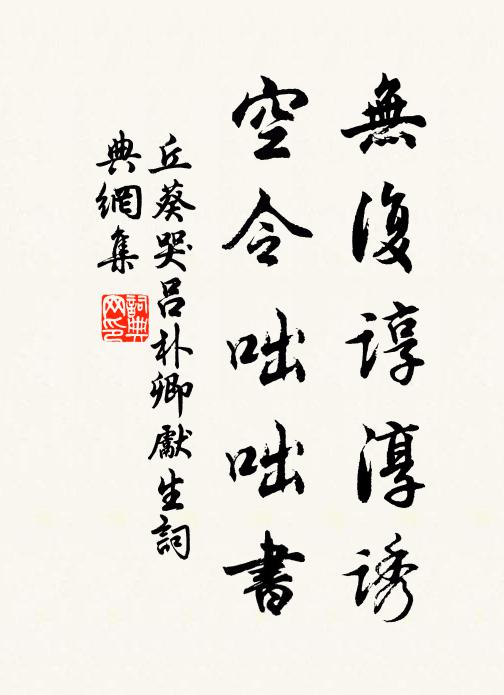 無復諄淳誘
空令咄咄書
丘葵哭吕朴卿獻生詞
典網集
詞典网印